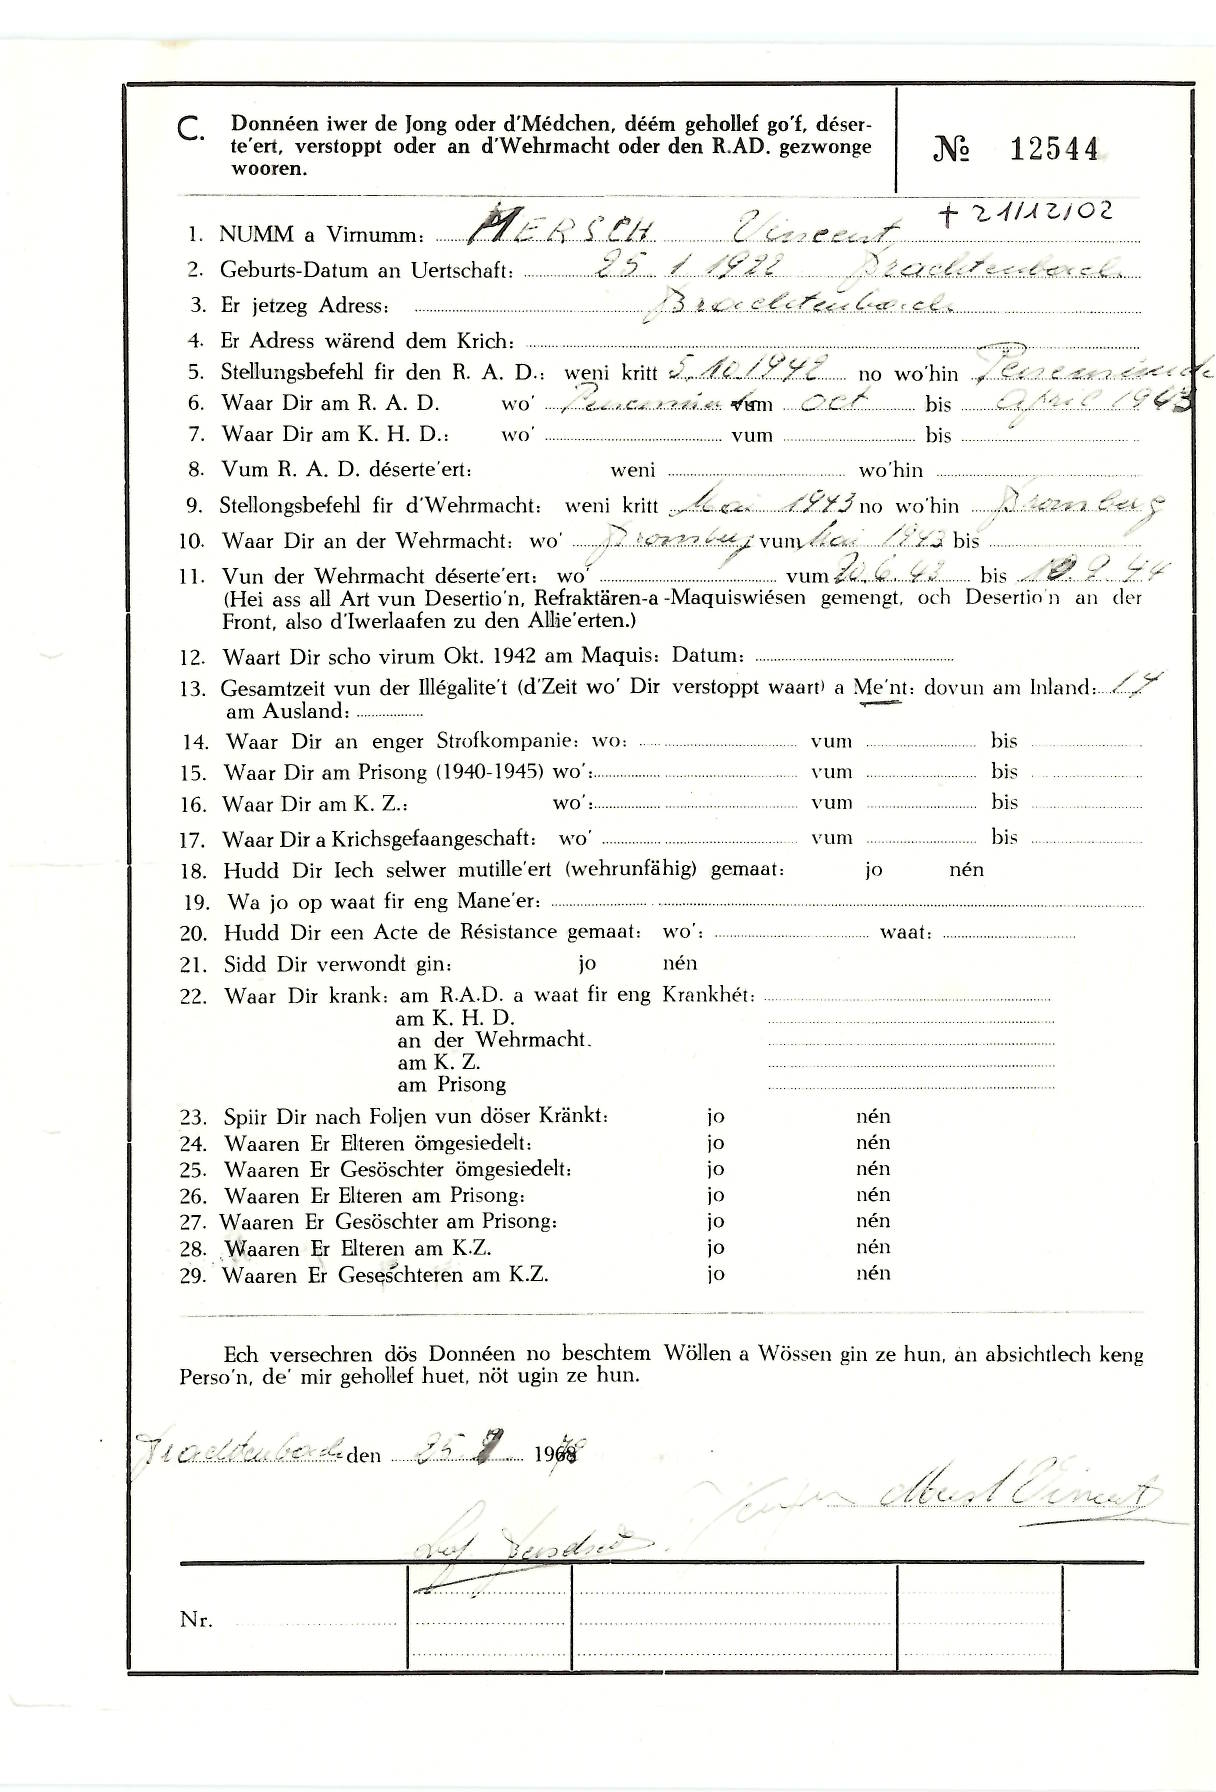 C. Donnéen iwer de Jong oder d'Médchen, déém gehollef go'f, déser-
te'ert, verstoppt oder an d'Wehrmacht oder den R.AD. gezwonge
wooren.
№ 12544
† 21/12/02
1. NUMM a Virnumm: MERSCH Vincent
2. Geburts-Datum an Uertschaft: 25 1 1922 Brachtenbach
3. Er jetzeg Adress: Brachtenbach
4. Er Adress wärend dem Krich:
5. Stellungsbefehl fir den R. A. D.: weni kritt 5. 10. 1942 no wo'hin Penemünde
6. Waar Dir am R. A. D. wo' vum Oct bis April 1943
7. Waar Dir am K. H. D.: wo' vum bis
8. Vum R. A. D. déserte'ert: weni wo'hin
9. Stellongsbefehl fir d'Wehrmacht: weni kritt Mai 1943 no wo'hin Bromberg
10. Waar Dir an der Wehrmacht: wo' Bromberg vum Mai 1943 bis
11. Vun der Wehrmacht déserte'ert: wo' vum 20 6 43 bis 10. 9. 44
(Hei ass all Art vun Desertio'n, Refraktären-a -Maquiswiésen gemengt, och Desertio'n an der
Front, also d'Iwerlaafen zu den Allie'erten.)
12. Waart Dir scho virum Okt. 1942 am Maquis: Datum:
13. Gesamtzeit vun der Illégalite't (d'Zeit wo' Dir verstoppt waart) a Me'nt: dovun am Inland:
am Ausland:
14. Waar Dir an enger Strofkompanie: wo: vum bis
15. Waar Dir am Prisong (1940-1945) wo': vum bis
16. Waar Dir am K. Z.: wo': vum bis
17. Waar Dir a Krichsgefaangeschaft: wo' vum bis
18. Hudd Dir Iech selwer mutille'ert (wehrunfähig) gemaat: jo nén
19. Wa jo op waat fir eng Mane'er:
20. Hudd Dir een Acte de Résistance gemaat: wo': waat:
21. Sidd Dir verwondt gin: jo nén
22. Waar Dir krank: am R.A.D. a waat fir eng Krankhét:
am K. H. D.
an der Wehrmacht.
am K. Z.
am Prisong
23. Spiir Dir nach Foljen vun döser Kränkt: jo nén
24. Waaren Er Elteren ömgesiedelt: jo nén
25. Waaren Er Gesöschter ömgesiedelt: jo nén
26. Waaren Er Elteren am Prisong: jo nén
27. Waaren Er Gesöschter am Prisong: jo nén
28. Waaren Er Elteren am K.Z. jo nén
29. Waaren Er Geseschteren am K.Z. jo nén
Ech versechren dös Donnéen no beschtem Wöllen a Wössen gin ze hun, an absichtlech keng
Perso'n, de' mir gehollef huet, nöt ugin ze hun.
Brachtenbach den 25. 1978
Mersch Vincent
Nr.